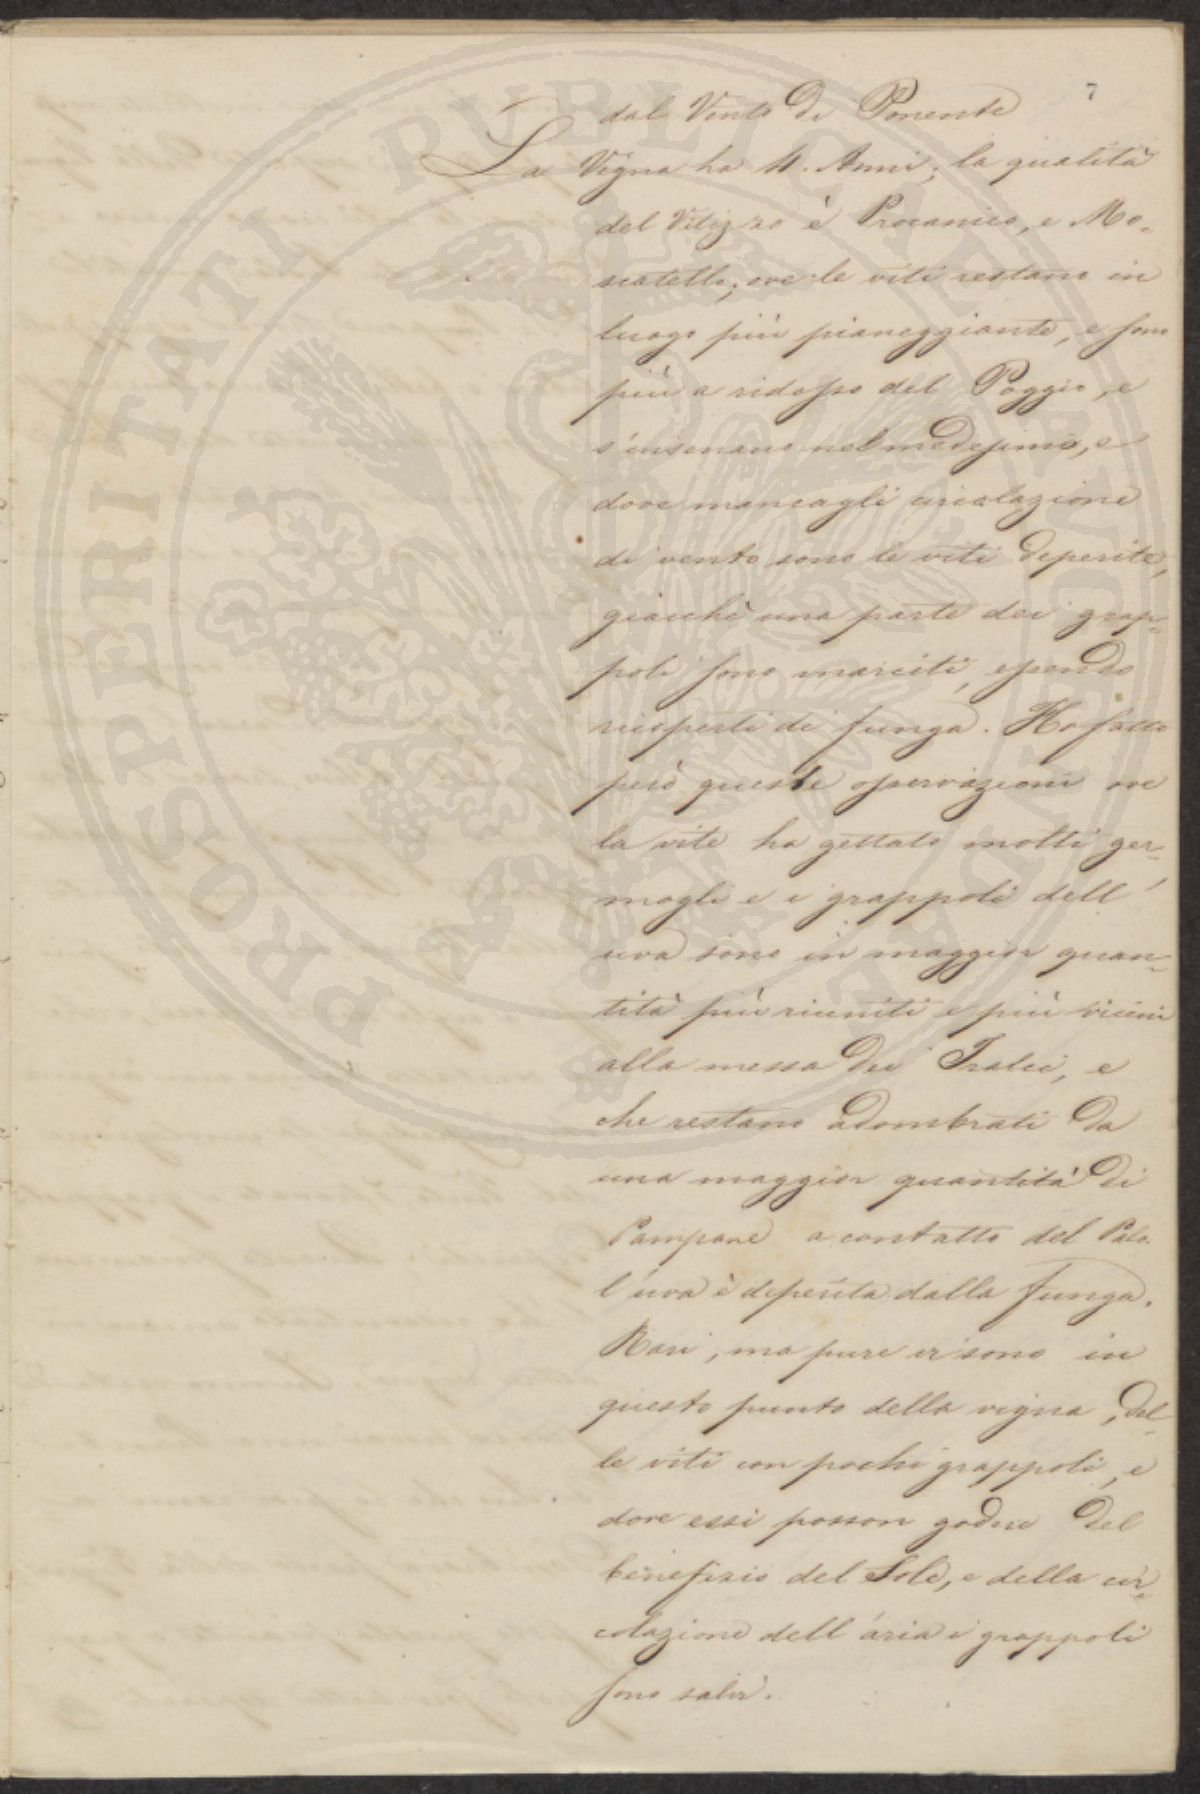 7
dal Vento di Ponente
La Vigna ha 11. Anni; la qualità
del Vitizzo è Procanico, e Mo-
scatello; ove le viti restano in
luogo più pianeggiante, e sono
più a ridosso del Poggio, e
s'insenano nel medesimo, e
dove mancagli circolazione
di vento sono le viti deperite,
giacchè una parte dei grap-
poli sono marciti, essendo
ricoperti di funga. Ho fatto
però queste osservazioni ove
la vite ha gettato molti ger-
mogli e i grappoli dell'
uva sono in maggior quan-
tità più riuniti e più vicini
alla messa dei Tralci, e
che restano adombrati da
una maggior quantità di
Pampane a contatto del Palo
l'uva è deperita dalla funga.
Rari, ma pure vi sono in
questo punto della vigna, del-
le viti con pochi grappoli, e
dove essi posson godere del
benefizio del Sole, e della cir-
colazione dell'aria i grappoli
sono salvi.
PROSPERITATI PUBLICAE AUGENDAE